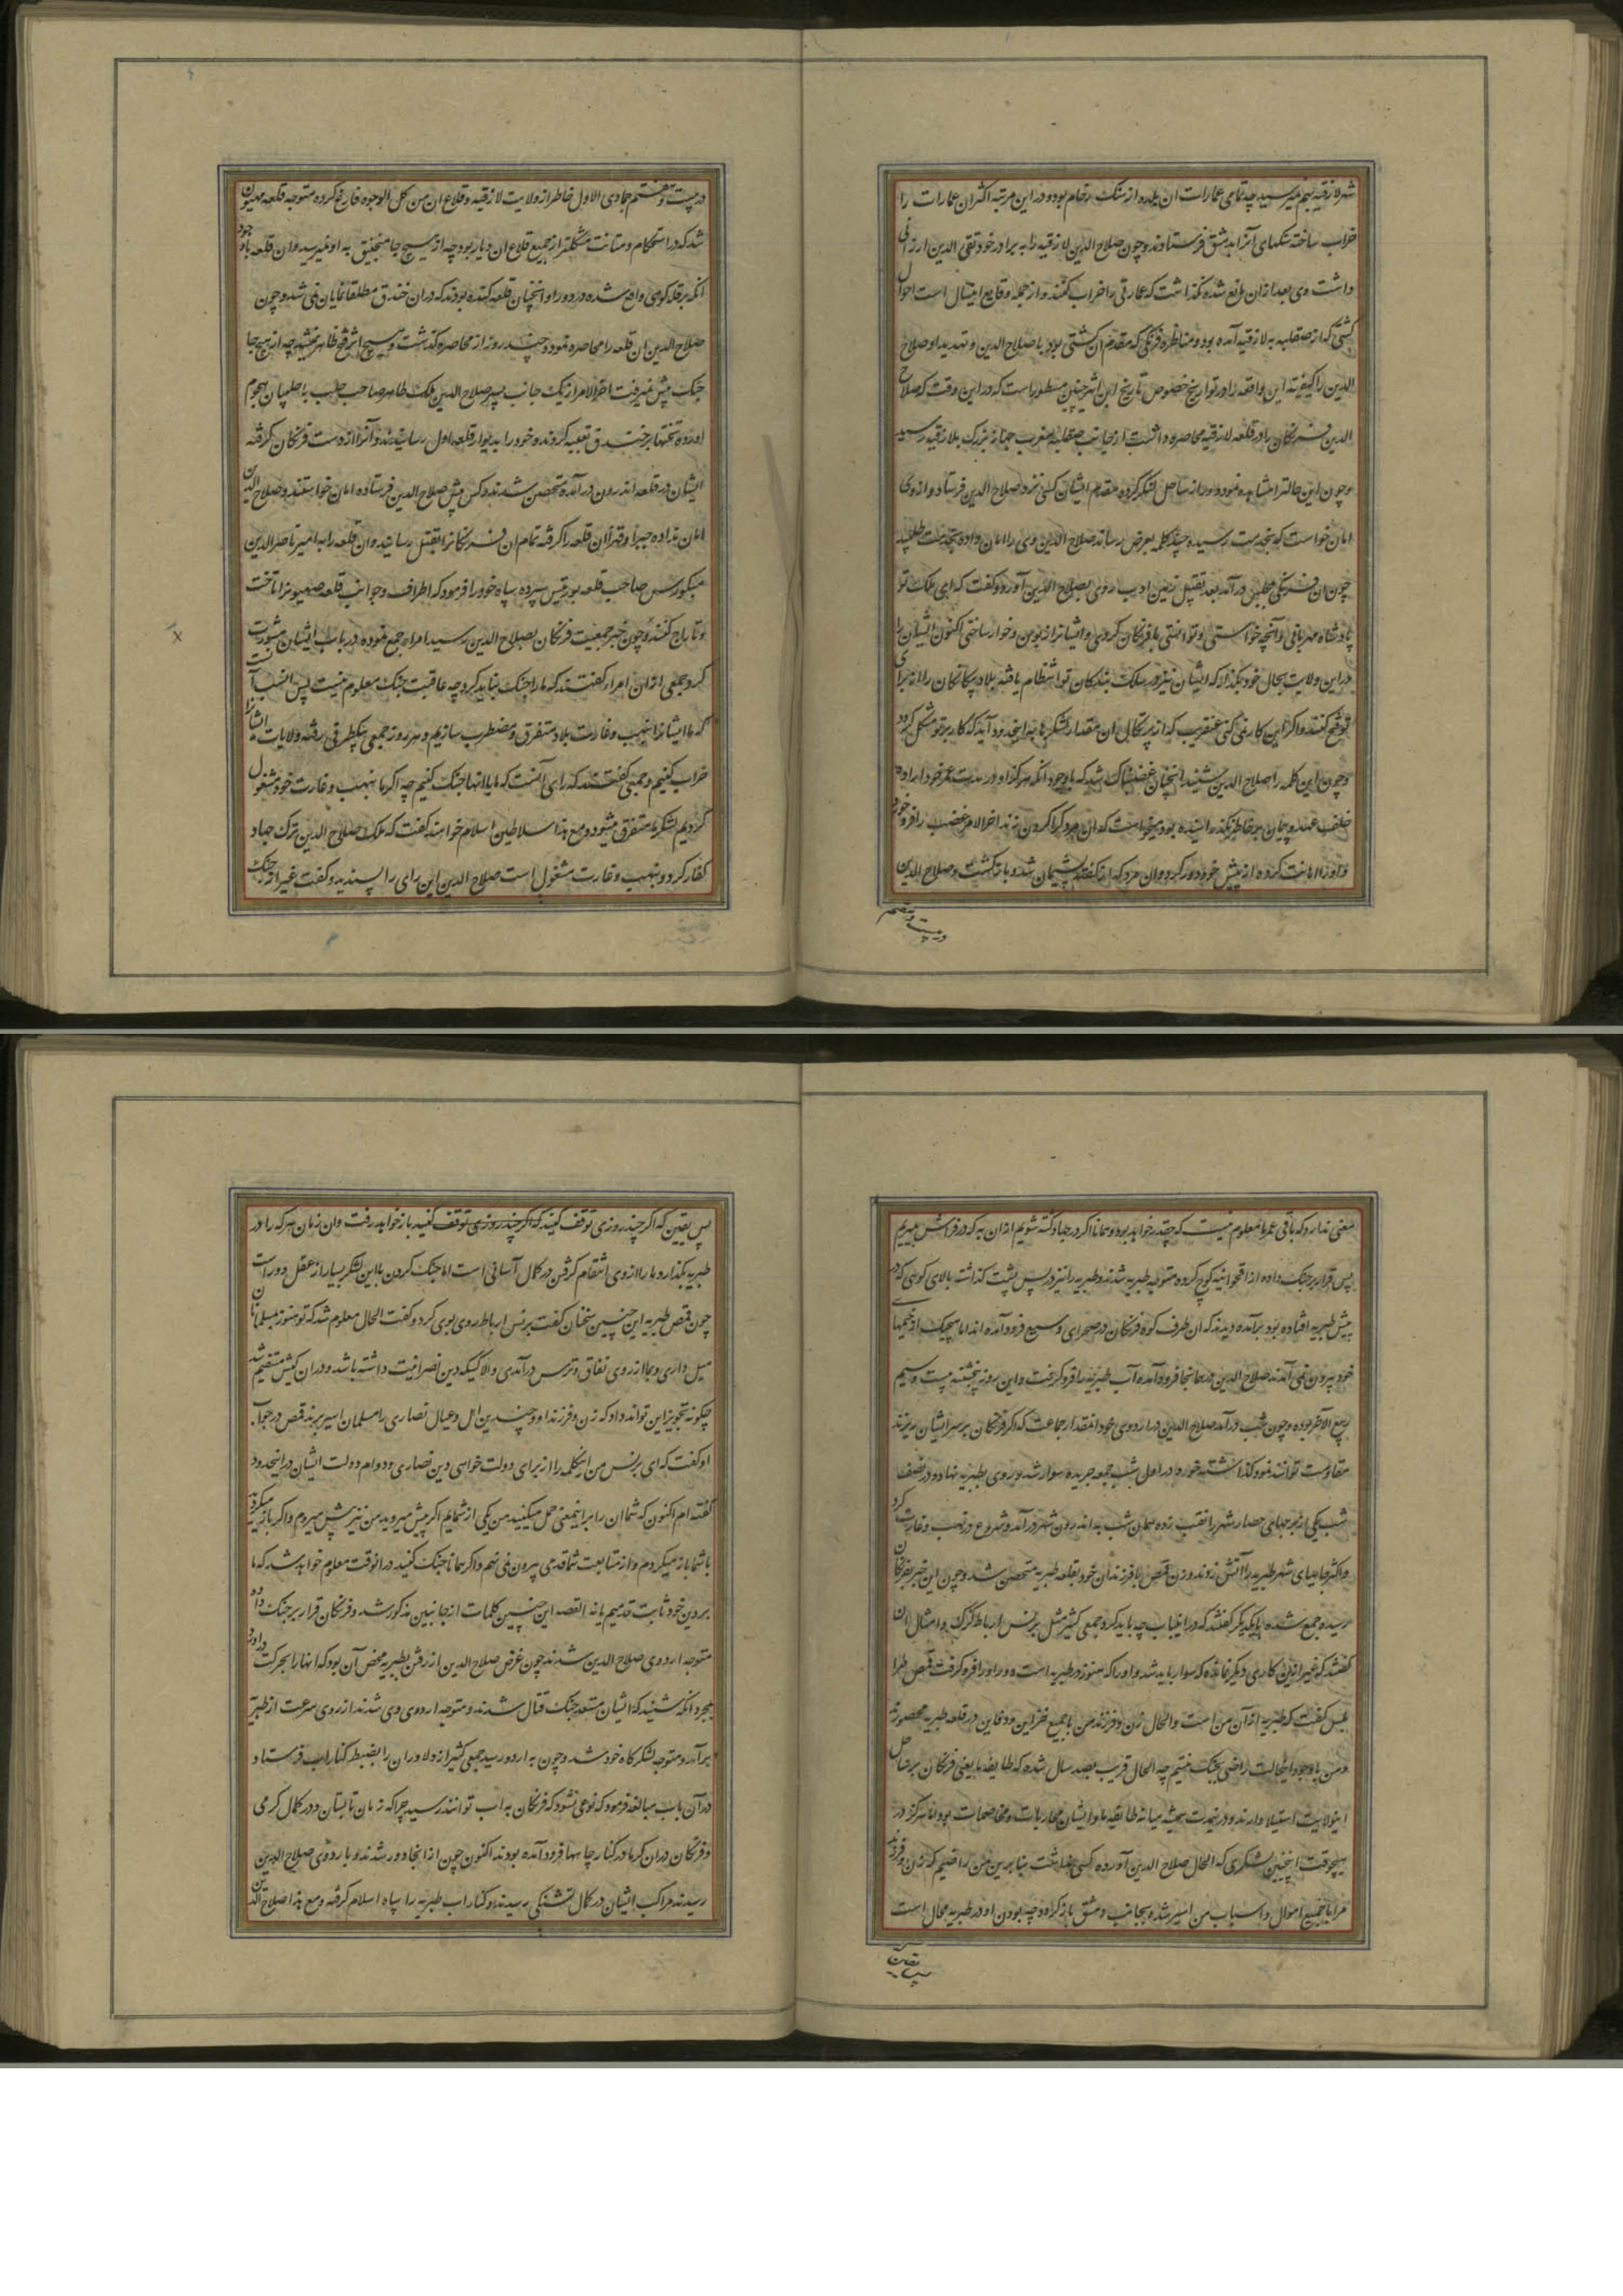 شهر لازقیه بهم میرسید چه تمامی عمارات ان بلده از سنک رخام بود و در این مرتبه اکثر ان عمارات را
خراب ساخته سنکهای آنرا بدمشق فرستادند و چون صلاح الدین لازقیه را به برادر خود تقی الدین ارزانی
داشت وی بعد ازان مانع شده نکذاشت که عمارتی را خراب کنند و از جمله وقایع این سال است احوال
کشتی که از صقلیه به لازقیه آمده بود و مناظره فرنکی که مقدم ان کشتی بود با صلاح الدین و تهدید او صلاح
الدین را کیفیت این واقعه را در تواریخ خصوص تاریخ ابن اثیر چنین مسطور است که در این وقت که صلاح
الدین فرنکان را در قلعه لازقیه محاصره داشت از جانب صقلیه مغرب جهاز بزرک بلازقیه رسید
و چون این حالت را مشاهده نمود از ساحل لشکر کروه مقدم ایشان کسی نزد صلاح الدین فرستاد و از وی
امان خواست که بخدمت رسیده چند کلمه بعرض رساند صلاح الدین وی را امان داده بخدمت طلبید
چون ان فرنکی بمجلس درآمد بعد تقبیل زمین ادب روی بصلاح الدین آورد و کفت که ای ملک تو
پادشاه مهربانی و آنچه خواستی و توانستی با فرنکان کردی و ایشانرا زبون و خوار ساختی اکنون ایشان را
در این ولایت بحال خود بکذار که ایشان نیز در سلک بندکان تو انتظام یافته بلاد بیکانکان را از برای
تو فتح کنند و اکر این کار نمی کنی عنقریب که از پرتکال ان مقدار لشکرها به اینحدود آید که کار بر تو مشکل کردد
و چون این کلمه را صلاح الدین شنید انچنان غضبناک شد که باوجود انکه هرکز او در مدت عمر خود اراده
خلف عهد و پیمان بخاطر نکذرانیده بود میخواست که ان مرد را کردن زند اخر الامر غضب را فرو خورد
و او را اهانت کرده از پیش خود دور کرد و ان مرد که از کفته پشیمان شده باز کشت و صلاح الدین
در بیست و هفتم
در بیست و هفتم جمادی الاول خاطر از ولایت لازقیه و قلاع ان من کل الوجوه فارغ کرده متوجه قلعه صهیون
شد که در استحکام و متانت مشکلتر از جمیع قلاع ان دیار بود چه از هیچ جا منجنیق به او نمیرسید و ان قلعه باوجود
انکه بر قله کوهی واقع شده در دور او انچنان قلعه کنده بودند که در ان خندق مطلقا نمایان نمی شد و چون
صلاح الدین ان قلعه را محاصره نمود و چند روز از محاصره کذشت و هیچ اثر فتح ظاهر نشد چه از هیچ جا
جنک پیش نمیرفت اخر الامر از یک جانب پسر صلاح الدین ملک ظاهر صاحب حلب با حلبیان هجوم
اورده تختها بر خندق تعبیه کردند و خود را بدیوار قلعه اول رسانیدند و آنرا از دست فرنکان کرفته
ایشان در قلعه اندرون در آمده متحصن شدند و کس پیش صلاح الدین فرستاده امان خواستند و صلاح الدین
امان نداده جبرا و قهرا ان قلعه را کرفته تمام ان فرنکانرا بقتل رسانید و ان قلعه را به امیر ناصر الدین
منکورس صاحب قلعه بورقیس سپرده سپاه خود را فرمود که اطراف و جوانب قلعه صهیونرا تاخت
و تاراج کنند و چون خبر جمعیت فرنکان بصلاح الدین رسید امرا جمع نموده در باب ایشان مشورت
کرد جمعی از ان امراء کفتند که ما را جنک نباید کرد چه عاقبت جنک معلوم نیست پس انسب آنست
که ما ایشانرا نهب و غارت بلاد متفرق و مضطرب سازیم و هر روز جمعی بیکطرفی رفته ولایات ایشانرا
خراب کنیم و جمعی کفتند که رای آنست که ما با انها جنک کنیم چه اکر ما بنهب و غارت خود مشغول
کردیم لشکر ما متفرق میشود و مع هذا سلاطین اسلام خواهند کفت که ملک صلاح الدین ترک جهاد
کفار کرد و بنهب و غارت مشغول است صلاح الدین این رای را پسندید و کفت غیر از جنک
معنی ندارد که باقی عمر ما معلوم نیست که چقدر خواهد بود و همانا اکر در جهاد کشته شویم ازان به که در فراش بمیریم
پس قرار بر جنک داده از اقحوانیه کوچ کرده متوجه طبریه شدند و طبریه را نیز در پس پشت کذاشته بالای کوهی که در
پیش طبریه افتاده بود برآمده دیدند که ان طرف کوه فرنکان در صحرای وسیع فرود آمده اند اما هیچیک از خیمهای
خود بیرون نمی آیند صلاح الدین در همانجا فرود آمده آب طبریه را فرو کرفت و این روز پنجشنبه بیست و سیم
ربیع الآخر بوده و چون شب درآمد صلاح الدین در اردوی خود انقدر جماعت که اکر فرنکان بر سر ایشان ریزند
مقاومت توانند نمود کذاشته خود در اول شب جمعه جریده سوار شد و روی بطبریه نهاد و در نصف
شب یکی از برجهای حصار شهر را نقب زده همان شب به اندرون شهر درآمد و شروع در نهب و غارت کرد
و اکثر جاهای شهر طبریه را آتش زدند و زن قمص با فرزندان خود بقلعه طبریه متحصن شد و چون این خبر بفرنکان
رسیده جمع شده با یکدیکر کفتند که در اینباب چه باید کرد جمعی کثیر مثل برنس ارباط کرک و امثال ان
کفتند که غیر از این کاری دیکر نمانده که سوار باید شد و او را که هنوز در طبریه است دور او را فرو کرفت قمص طرا
بلس کفت که طبریه ازآن من است و الحال زن و فرزند من با جمیع خزاین و دفاین در قلعه طبریه محصورند
و من باوجود اینحالت راضی بجنک نیستم چه الحال قریب بصد سال شده که طایفه ما یعنی فرنکان بر ساحل
اینولایت استیلا دارند و درینمدت همیشه میانه طایفه ما و ایشان محاربات و مخاصمات بود اما هرکز در
هیچوقت اینچنین لشکری که الحال صلاح الدین آورده کسی نداشت بنابرین من راضیم که زن و فرزند
مرا با جمیع اموال و اسباب من اسیر شده بجانب دمشق باز کردد چه بودن او در طبریه محال است
پس یقین
پس یقین که اکر چند روزی توقف کنید که اکر چند روزی توقف کنید باز خواهد رفت و ان زمان هر که را در
طبریه بکذارد ما را از وی انتقام کرفتن در کمال آسانی است اما جنک کردن با این لشکر بسیار از عقل دور است
چون قمص طبریه این چنین سخنان کفت برنس ارباط روی بوی کرد و کفت الحال معلوم شد که تو هنوز بمسلمانان
میل داری و بما از روی نفاق و ترس درآمدی والا کسیکه دین نصرانیت داشته باشد و در ان کیش مستقیم باشد
چکونه تجویز این تواند داد که زن و فرزند او و چندین اهل و عیال نصاری را مسلمان اسیر برند قمص در جواب
او کفت که ای برنس من اینکلمه را از برای دولت خواهی دین نصاری و دوام دولت ایشان در اینحدود
کفته ام اکنون که شما ان را بر اینمعنی حمل میکنید من یکی از شمایم اکر پیش میروید من نیز پیش میروم و اکر باز میکردید
با شما باز میکردم و از متابعت شما قدمی بیرون نمی نهم و اکر همانا جنک کنید در انوقت معلوم خواهد شد که ما
بر دین خود ثابت قدمیم یا نه القصه این چنین کلمات از جانبین مذکور شد و فرنکان قرار بر جنک داده
متوجه اردوی صلاح الدین شدند چون غرض صلاح الدین از رفتن بطبریه محض آن بود که انها را بحرکت در آورد
بمجرد انکه شنید که ایشان مستعد جنک قتال شدند و متوجه اردوی وی شدند از روی سرعت از طبریه
برآمد و متوجه لشکرکاه خود شد و چون به اردو رسید جمعی کثیر از دلاوران را بضبط کنار اب فرستاد
در آن باب مبالغه فرمود که نوعی نشود که فرنکان به اب توانند رسید چرا که زمان تابستان و در کمال کرمی
و فرنکان در ان کرما در کنار چاهها فرود آمده بودند اکنون چون از انجا دور شدند و باردوی صلاح الدین
رسیدند مراکب ایشان در کمال تشنکی رسیدند و کنار اب طبریه را سپاه اسلام کرفته و مع هذا صلاح الدین